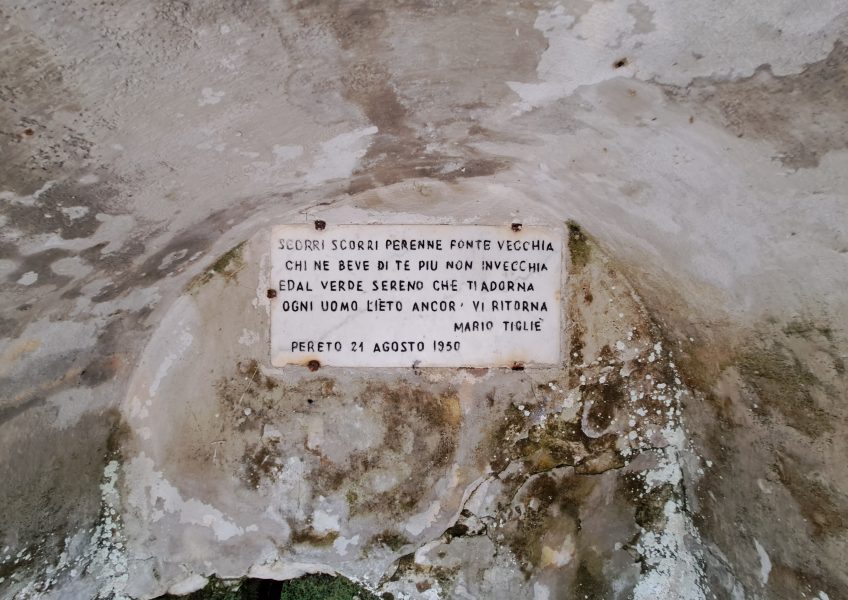 SCORRI SCORRI PERENNE FONTE VECCHIA
CHI NE BEVE DI TE PIU NON INVECCHIA
EDAL VERDE SERENO CHE TIADORNA
OGNI UOMO LIÈTO ANCOR' VI RITORNA
MARIO TIGLIÈ
PERETO 21 AGOSTO 1950